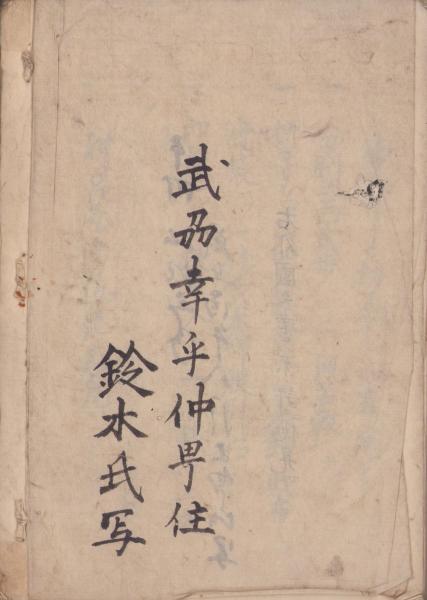 武刕幸乎仲町住
鈴木氏写